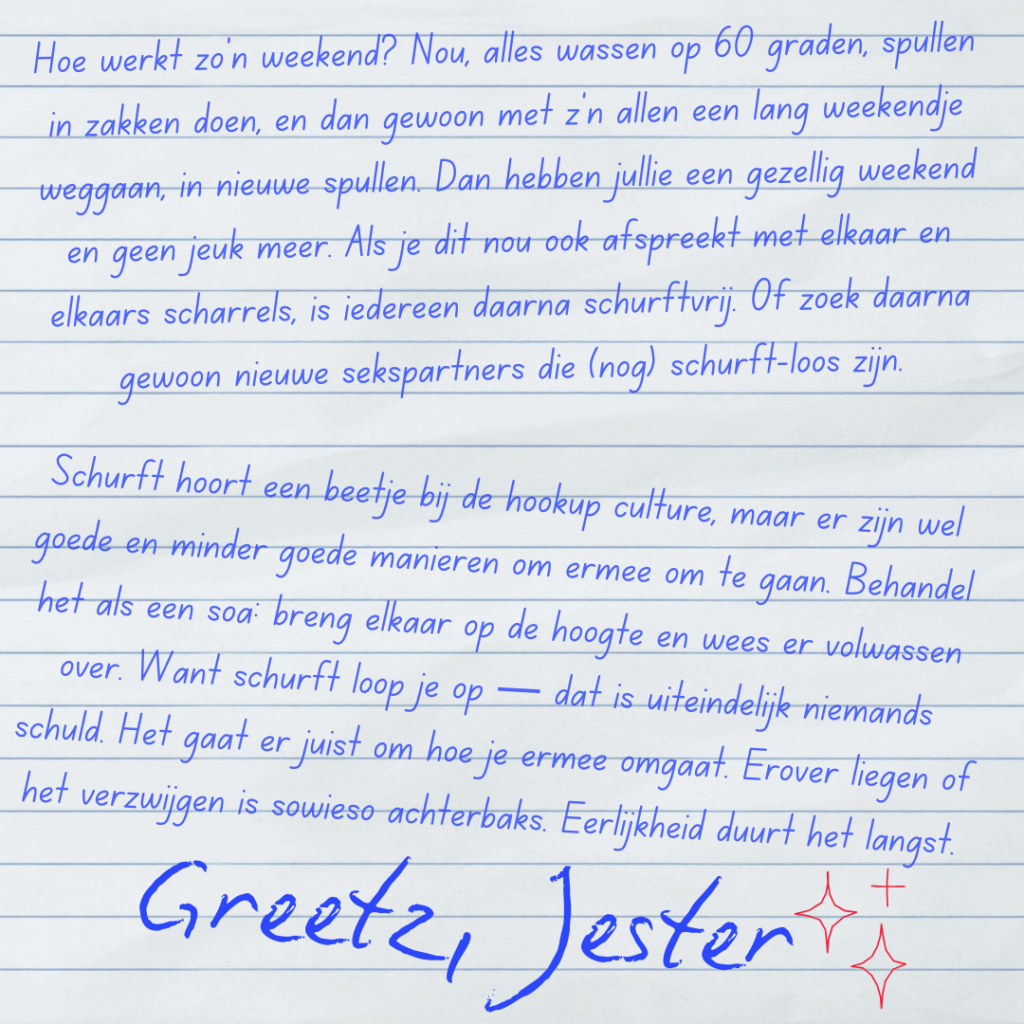 Hoe werkt zo'n weekend? Nou, alles wassen op 60 graden, spullen
in zakken doen, en dan gewoon met z'n allen een lang weekendje
weggaan, in nieuwe spullen. Dan hebben jullie een gezellig weekend
en geen jeuk meer. Als je dit nou ook afspreekt met elkaar en
elkaars scharrels, is iedereen daarna schurftvrij. Of zoek daarna
gewoon nieuwe sekspartners die (nog) schurft-loos zijn.
Schurft hoort een beetje bij de hookup culture, maar er zijn wel
goede en minder goede manieren om ermee om te gaan. Behandel
het als een soa: breng elkaar op de hoogte en wees er volwassen
over. Want schurft loop je op — dat is uiteindelijk niemands
schuld. Het gaat er juist om hoe je ermee omgaat. Erover liegen of
het verzwijgen is sowieso achterbaks. Eerlijkheid duurt het langst.
Greetz, Jester